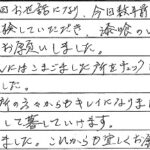 回お世話になり、今回数年前
検していただき、漆喰の
お願いしました。
んにはこまごました所をチェック
した。
所の方々からもキレイになりまし
して暮していけます。
ました。これからも宜しくお